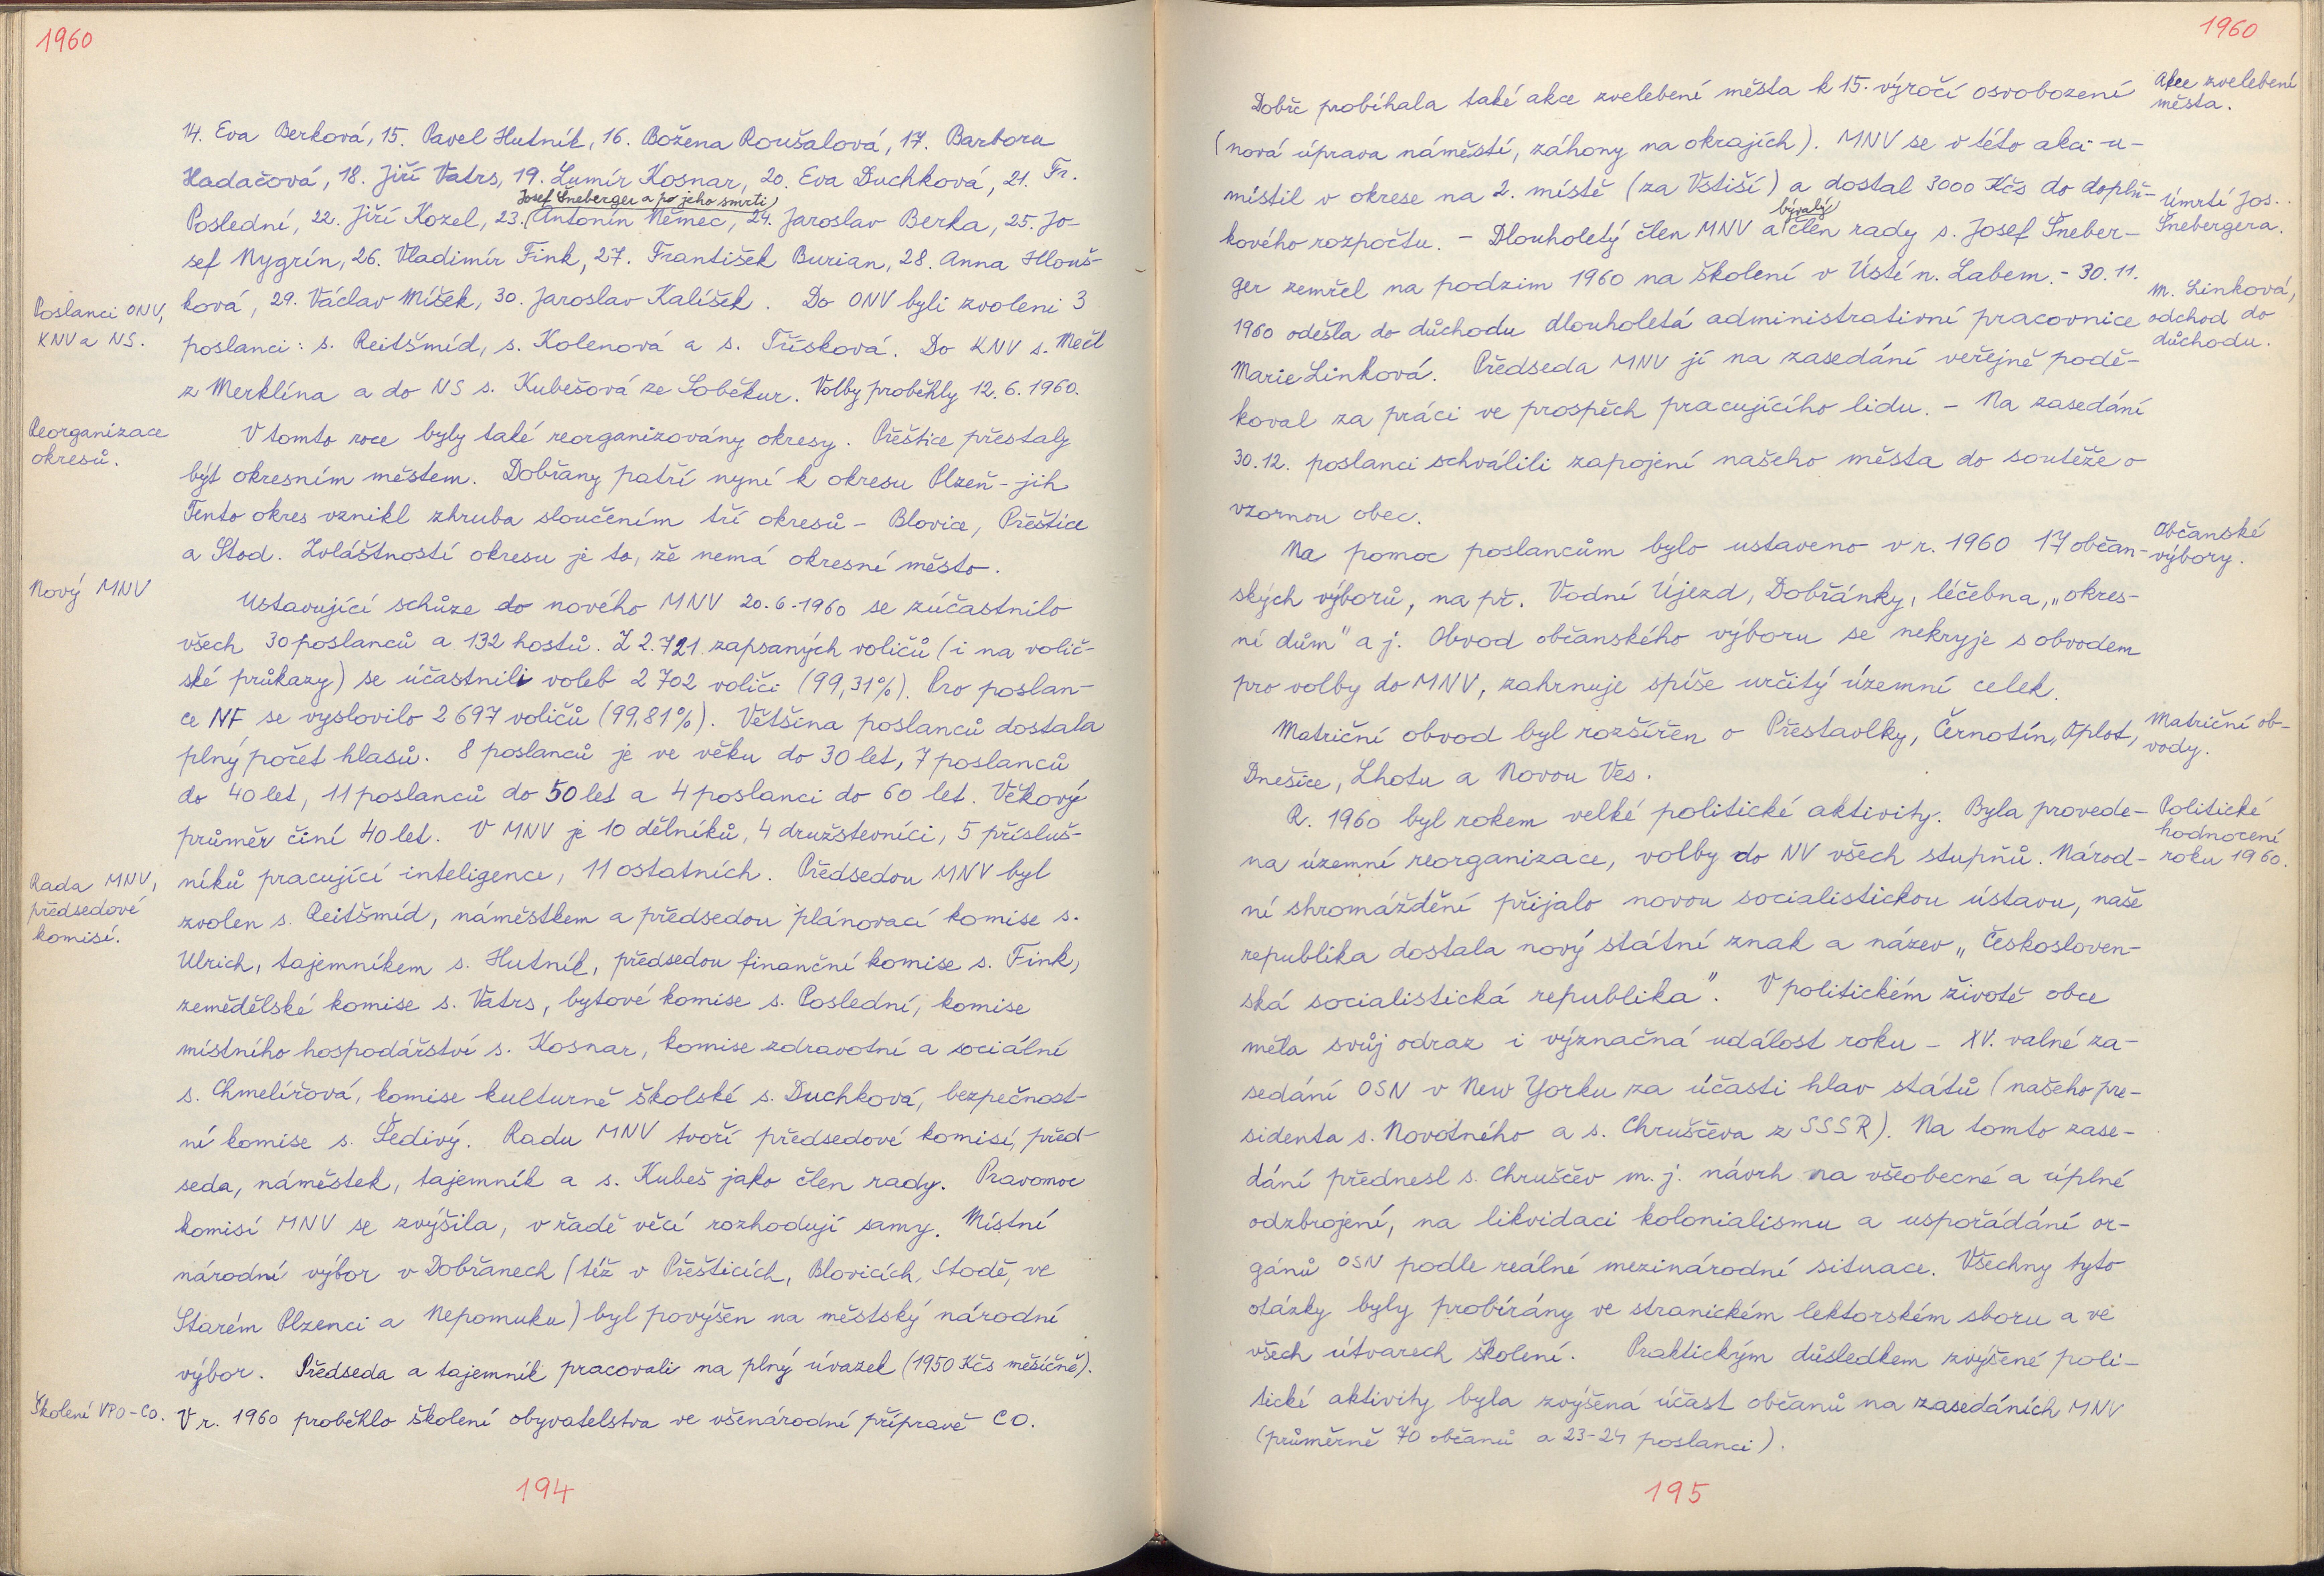 1960
14. Eva Berková, 15. Pavel Hutník, 16. Božena Roušalová, 17. Barbora
Hadačová, 18. Jiří Vatrs, 19. Lumír Kosnar, 20. Eva Duchková, 21. Fr.
Josef Šneberger a po jeho smrti
Poslední, 22. Jiří Kozel, 23. (Antonín Němec, 24. Jaroslav Berka, 25. Jo-
sef Nygrín, 26. Vladimír Fink, 27. František Burian, 28. Anna Hlouš-
ková, 29. Václav Míšek, 30. Jaroslav Kalíšek. Do ONV byli zvoleni 3
Poslanci ONV,
KNV a NS.
poslanci: s. Reitšmíd, s. Kolenová a s. Třísková. Do KNV s. Mečl
z Merklína a do NS s. Kubešová ze Soběkur. Volby proběhly 12. 6. 1960.
Reorganizace
okresů.
V tomto roce byly také reorganizovány okresy. Přeštice přestaly
být okresním městem. Dobřany patří nyní k okresu Plzeň-jih
Tento okres vznikl zhruba sloučením tří okresů - Blovice, Přeštice
a Stod. Zvláštností okresu je to, že nemá okresní město.
Nový MNV
Ustavující schůze do nového MNV 20.6.1960 se zúčastnilo
všech 30 poslanců a 132 hostů. Z 2.721 zapsaných voličů (i na volič-
ské průkazy) se účastnili voleb 2 702 voliči (99,31%). Pro poslan-
ce NF se vyslovilo 2 697 voličů (99,81%). Většina poslanců dostala
plný počet hlasů. 8 poslanců je ve věku do 30 let, 7 poslanců
do 40 let, 11 poslanců do 50 let a 4 poslanci do 60 let. Věkový
průměr činí 40 let. V MNV je 10 dělníků, 4 družstevníci, 5 přísluš-
níků pracující inteligence, 11 ostatních. Předsedou MNV byl
Rada MNV,
předsedové
komisí.
zvolen s. Reitšmíd, náměstkem a předsedou plánovací komise s.
Ulrich, tajemníkem s. Hutník, předsedou finanční komise s. Fink,
zemědělské komise s. Vatrs, bytové komise s. Poslední, komise
místního hospodářství s. Kosnar, komise zdravotní a sociální
s. Chmelířová, komise kulturně školské s. Duchková, bezpečnost-
ní komise s. Šedivý. Radu MNV tvoří předsedové komisí, před-
seda, náměstek, tajemník a s. Kubeš jako člen rady. Pravomoc
komisí MNV se zvýšila, v řadě věcí rozhodují samy. Místní
národní výbor v Dobřanech (též v Přešticích, Blovicích, Stodě, ve
Starém Plzenci a Nepomuku) byl povýšen na městský národní
výbor. Předseda a tajemník pracovali na plný úvazek (1950 Kčs měsíčně).
Školení VPO-CO.
V r. 1960 proběhlo školení obyvatelstva ve všenárodní přípravě CO.
194
1960
Dobře probíhala také akce zvelebení města k 15. výročí osvobození
Akce zvelebení
města.
(nová úprava náměstí, záhony na okrajích). MNV se v této akci u-
místil v okrese na 2. místě (za Vstiší) a dostal 3000 Kčs do doplň-
bývalý
kového rozpočtu. - Dlouholetý člen MNV a člen rady s. Josef Šneber-
Úmrtí Jos.
Šnebergera.
ger zemřel na podzim 1960 na školení v Ústí n. Labem. - 30. 11.
1960 odešla do důchodu dlouholetá administrativní pracovnice
M. Linková,
odchod do
důchodu.
Marie Linková. Předseda MNV jí na zasedání veřejně podě-
koval za práci ve prospěch pracujícího lidu. - Na zasedání
30.12. poslanci schválili zapojení našeho města do soutěže o
vzornou obec.
Na pomoc poslancům bylo ustaveno v r. 1960 17 občan-
Občanské
výbory.
ských výborů, na př. Vodní Újezd, Dobřánky, léčebna, „okres-
ní dům" a j. Obvod občanského výboru se nekryje s obvodem
pro volby do MNV, zahrnuje spíše určitý územní celek.
Matriční obvod byl rozšířen o Přestavlky, Černotín, Oplot,
Matriční ob-
vody.
Dnešice, Lhotu a Novou Ves.
R. 1960 byl rokem velké politické aktivity. Byla provede-
Politické
hodnocení
roku 1960.
na územní reorganizace, volby do NV všech stupňů. Národ-
ní shromáždění přijalo novou socialistickou ústavu, naše
republika dostala nový státní znak a název „Českosloven-
ská socialistická republika". V politickém životě obce
měla svůj odraz i význačná událost roku - XV. valné za-
sedání OSN v New Yorku za účasti hlav států (našeho pre-
sidenta s. Novotného a s. Chruščeva z SSSR). Na tomto zase-
dání přednesl s. Chruščev m. j. návrh na všeobecné a úplné
odzbrojení, na likvidaci kolonialismu a uspořádání or-
gánů OSN podle reálné mezinárodní situace. Všechny tyto
otázky byly probírány ve stranickém lektorském sboru a ve
všech útvarech školení. Praktickým důsledkem zvýšené poli-
tické aktivity byla zvýšená účast občanů na zasedáních MNV
(průměrně 70 občanů a 23-24 poslanci).
195